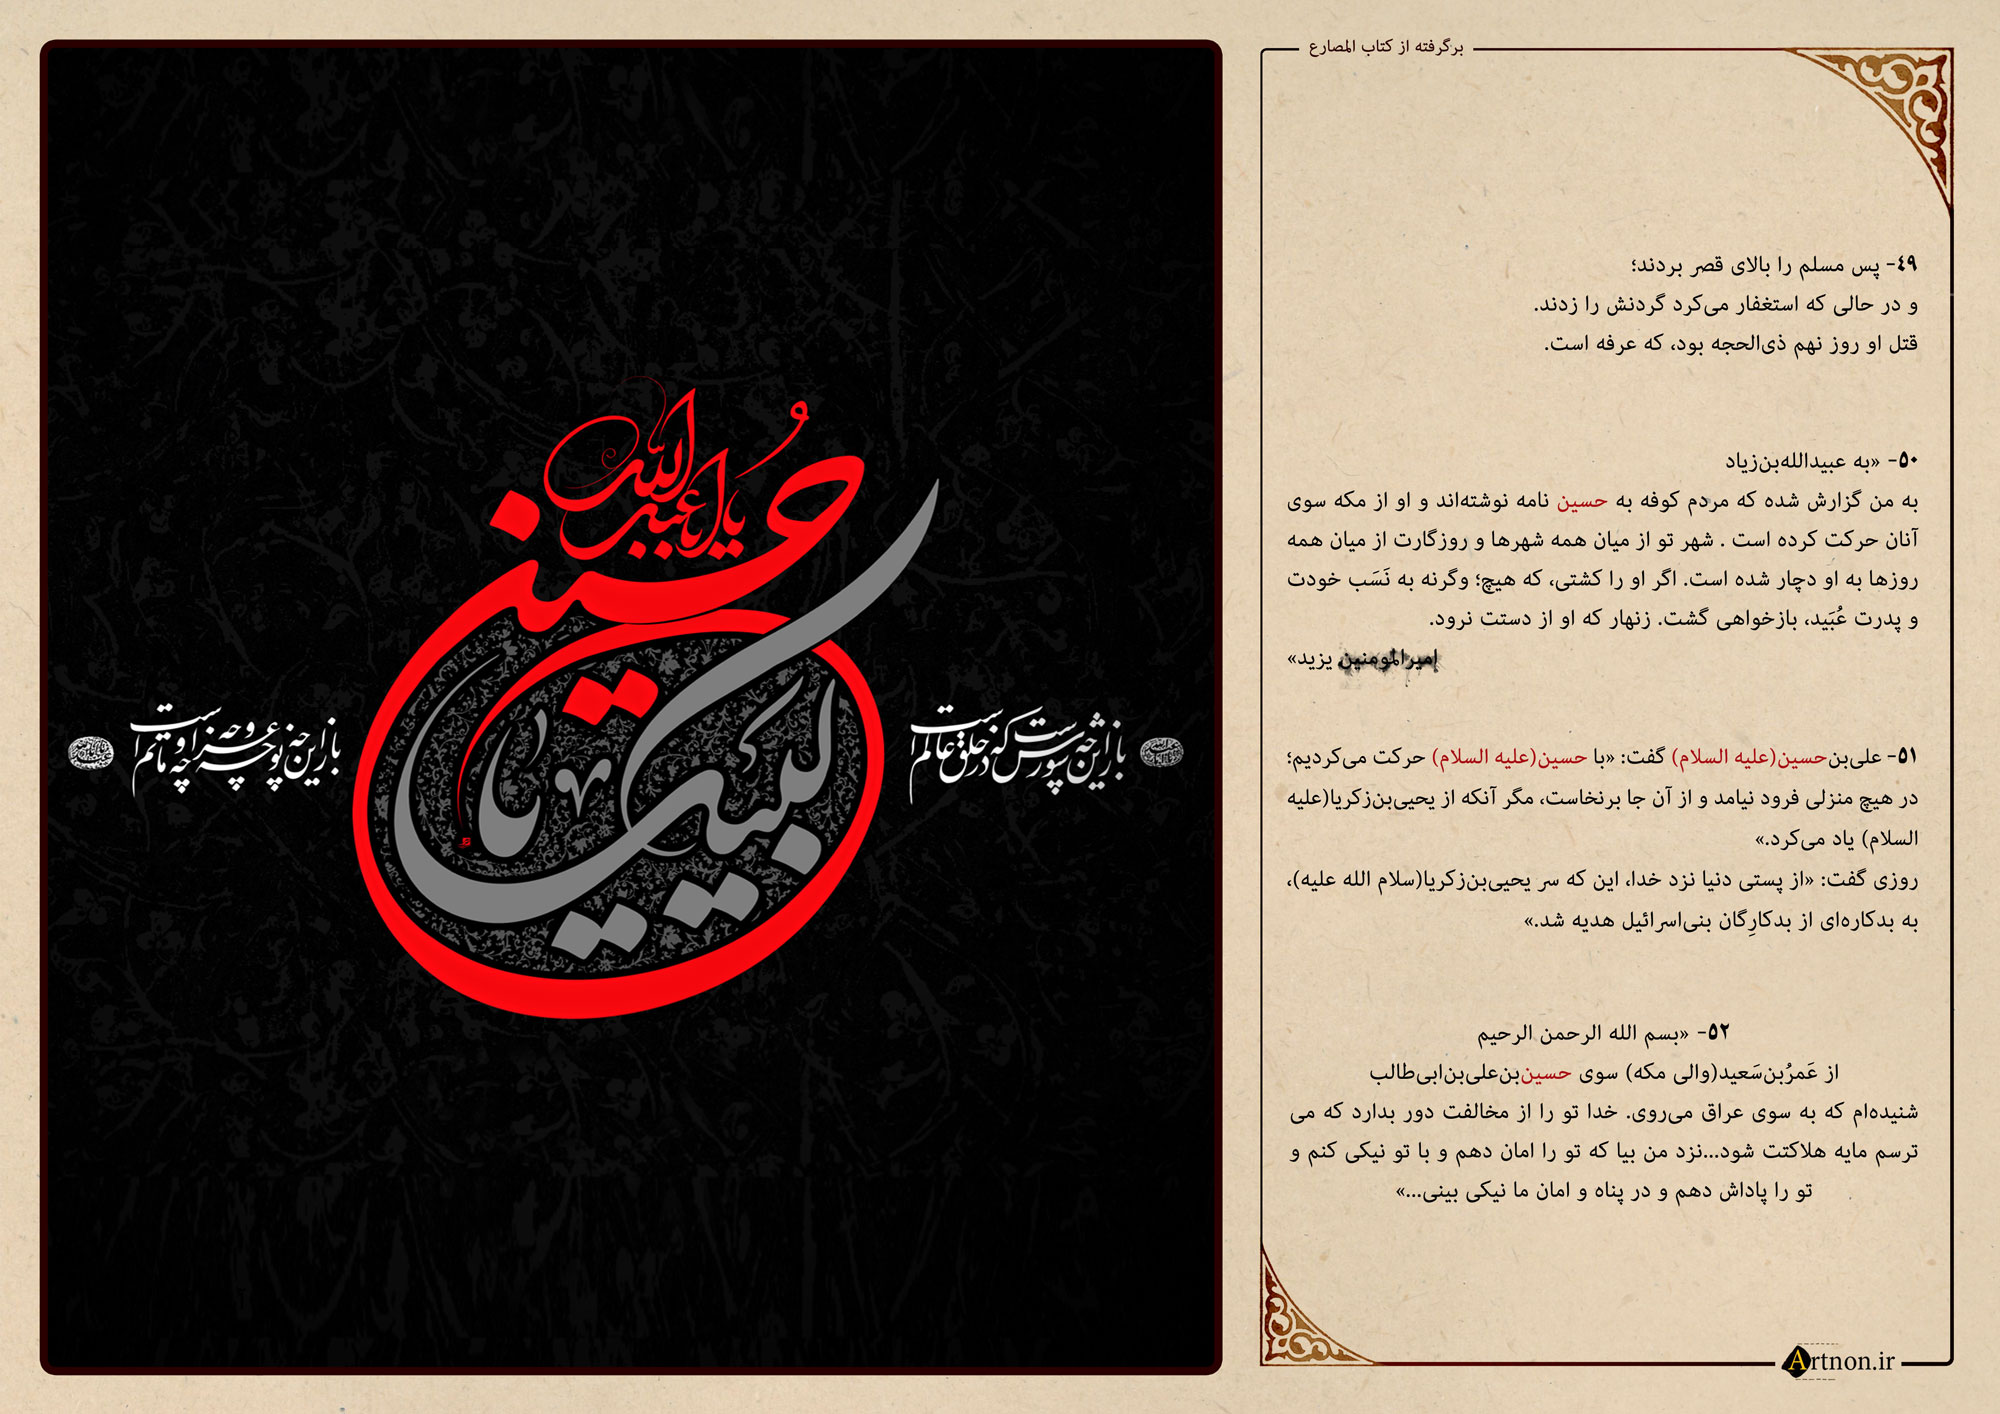 برگرفته از کتاب المصارع
۴۹- پس مسلم را بالای قصر بردند؛
و در حالی که استغفار می‌کرد گردنش را زدند.
قتل او روز نهم ذی‌الحجه بود، که عرفه است.
۵۰- «به عبیدالله‌بن‌زیاد
به من گزارش شده که مردم کوفه به حسین نامه نوشته‌اند و او از مکه سوی
آنان حرکت کرده است . شهر تو از میان همه شهرها و روزگارت از میان همه
روزها به او دچار شده است. اگر او را کشتی، که هیچ؛ وگرنه به نَسَب خودت
و پدرت عُبَید، بازخواهی گشت. زنهار که او از دستت نرود.
امیرالمومنین یزید»
۵۱- علی‌بن‌حسین(علیه السلام) گفت: «با حسین(علیه السلام) حرکت می‌کردیم؛
در هیچ منزلی فرود نیامد و از آن جا برنخاست، مگر آنکه از یحیی‌بن‌زکریا(علیه
السلام) یاد می‌کرد.»
روزی گفت: «از پستی دنیا نزد خدا، این که سر یحیی‌بن‌زکریا(سلام الله علیه)،
به بدکاره‌ای از بدکارِگان بنی‌اسرائیل هدیه شد.»
۵۲- «بسم الله الرحمن الرحیم
از عَمرُبن‌سَعید(والی مکه) سوی حسین‌بن‌علی‌بن‌ابی‌طالب
شنیده‌ام که به سوی عراق می‌روی. خدا تو را از مخالفت دور بدارد که می
ترسم مایه هلاکتت شود...نزد من بیا که تو را امان دهم و با تو نیکی کنم و
تو را پاداش دهم و در پناه و امان ما نیکی بینی...»
Artnon.ir
یا اباعبدالله
لبیک یا حسین
باز این چه شورش است که در خلق عالم است
باز این چه نوحه و چه عزا و چه ماتم است